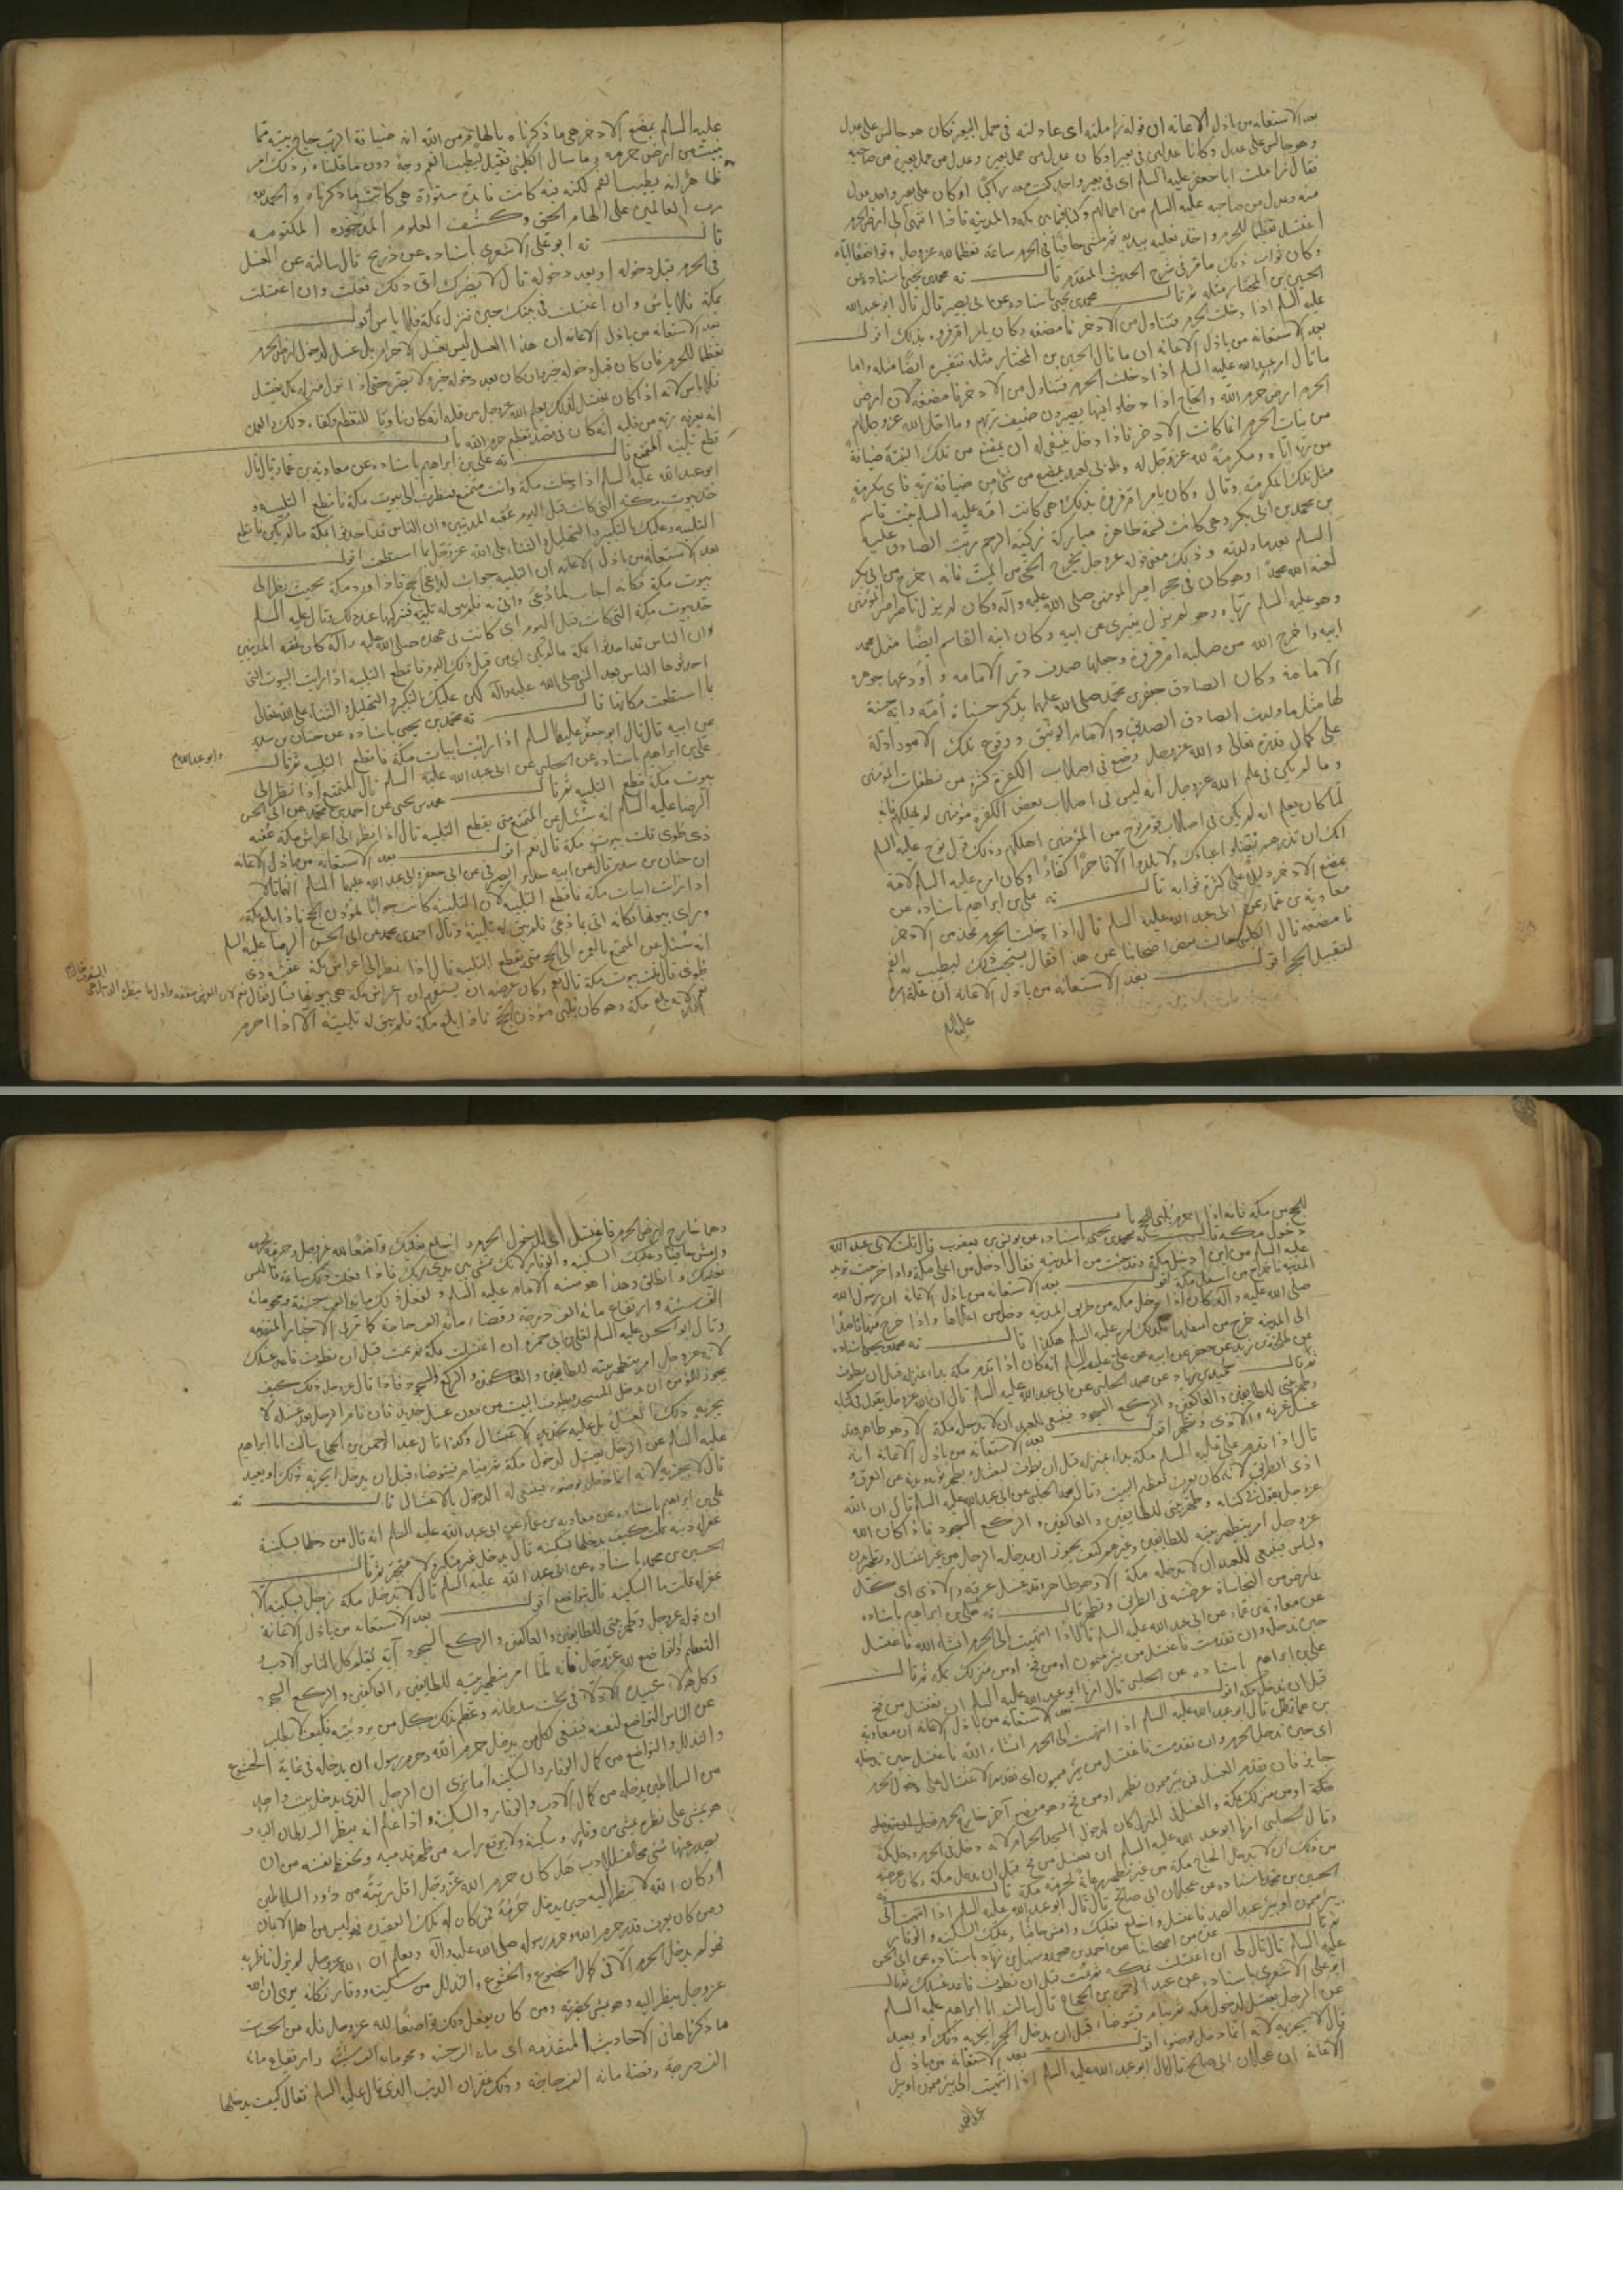 بعد الاستعانه من باذل الاعانه ان قوله زاملته اى عادلته فى حمل البعير فكان هو جالس على عدل
وهو جالس على عدل وكانا عدلين فى بعير او كان عدل من حمل بعيره وعدل من حمل بعيره من صاحبه
فقال زاملت ابا جعفر عليه السلام اى فى بعير واحد كنت معه راكبا او كان على بعير واحد عدل
منه وعدل من صاحبه عليه السلام من احمالهم وكنا فيما بين مكه والمدينه فاذا انتهى الى ارض الحرم
اغتسل تعظيما للحرم واخذ نعليه بيديه ثم مشى حافيا فى الحرم ساعة تعظيما لله عزوجل وتواضعا اياه
وكان ثواب ذلك ما مر فى شرح الحديث المتقدم قال ته محمد بن يحيى باسناده عن
الحسين بن المختار مثله ثم قال محمد بن يحيى باسناده عن ابى بصير قال قال ابو عبد الله
عليه السلام اذا دخلت الحرم فتناول من الاذخر فامضغه وكان يامر ام فروه بذلك اقول
بعد الاستعانه من باذل الاعانه ان ما قال الحسين بن المختار مثله فتفسيره ايضا مثله واما
ما قال ابو عبد الله عليه السلام اذا دخلت الحرم فتناول من الاذخر فامضغه لان ارض
الحرم ارض حرم الله والحاج اذا دخلوا فيها يصيرون ضيف ربهم وما احل الله عزوجل لهم
من نبات الحرم انما كانت الاذخر فاذا دخل ينبغى له ان يمضغ من تلك النبتة ضيافة
من ربه اياه ومكرمة لله عزوجل له وطوبى لعبد يمضغ من شئ من ضيافة ربه فاى مكرمة
مثل تلك المكرمة وقال وكان يامر ام فروة بذلك وهى كانت امه عليه السلام بنت قاسم
بن محمد بن ابى بكر وهى كانت نسمة طاهرة مباركة تزكيه الرحم ربت الصادق عليه
السلام بعد ما ولدته وذلك معنى قوله عزوجل يخرج الحى من الميت فانه اخرج من ابى بكر
لعنه الله محمدا وهو كان فى حجر امير المؤمنين صلى الله عليه وآله وكان لم يزل ناظر امير المؤمنين
وهو عليه السلام رباه وهو لم يزل يتبرى عن ابيه وكان ابنه القاسم ايضا مثل محمد
ابيه واخرج الله من صلبه ام فروة وجعلها صدف در الامامه و اودعها جوهر
الامامة وكان الصادق جعفر بن محمد صلى الله عليهما يذكر حسناة امه وايه حسنة
لها مثل ما ولدت الصادق الصديق والامام الوثيق ووقوع تلك الامور ادلة
على كمال قدرة تعالى والله عزوجل وضع فى اصلاب الكفرة كثرة من نطفات المؤمنين
وما لم يكن فى علم الله عزوجل انه ليس فى اصلاب بعض الكفرة مؤمنين لم يهلكهم فانه
لما كان يعلم انه لم يكن فى اصلاب قوم نوح من المؤمنين اهلكهم وذلك قول نوح عليه السلم
انك ان تذرهم يضلوا عبادك ولا يلدوا الا فاجرا كفارا وكان امره عليه السلم لامه
بمضغ الاذخر دليل على كثرة ثوابه قال ته على بن ابراهيم باسناده عن
معاوية بن عمار عن ابى عبد الله عليه السلم قال اذا دخلت الحرم فخذ من الاذخر
فامضغه قال الكلينى سالت بعض اصحابنا عن هذا فقال يستحب ذلك ليطيب به الفم
لتقبيل الحجر اقول بعد الاستعانه من باذل الاعانه ان علة امره
عليه السلم
عليه السلم بمضغ الاذخر هى ما ذكرناه بالهام من الله انه ضيافة الرب حاج بيته مما
ينبت من ارض حرمه وما سال الكلينى فقيل ليطيب الفم وجه دون ما قلناه وذلك امر
ظاهر انه يطيب الفم لكنه فيه كانت فايدة مستورة هى كانت ما ذكرناه والحمد لله
رب العالمين على الهام الحق وكشف العلوم المذخوره المكنونه
قال ته ابو على الاشعرى باسناده عن ذريح قال سالته عن الغسل
فى الحرم قبل دخوله او بعد دخوله قال لا يضرك اى ذلك فعلت وان اغتسلت
بمكة فلا باس وان اغتسلت فى بيتك حين تنزل بمكة فلا باس اقول
بعد الاستعانه من باذل الاعانه ان هذا الغسل ليس بغسل الاحرام بل غسل لدخول ارض الحرم
تعظيما للحرم
قطع تلبية المتمتع قال ته على بن ابراهيم باسناده عن معاويه بن عمار قال قال
ابو عبد الله عليه السلم اذا دخلت مكة وانت متمتع فنظرت الى بيوت مكة فاقطع التلبيه و
حد بيوت مكة التى كانت قبل اليوم عقبه المدنيين وان الناس قد احدثوا بمكة ما لم يكن فاقطع
التلبيه وعليك بالتكبير والتهليل والثناء على الله عزوجل بما استطعت اقول
بعد الاستعانه من باذل الاعانه ان التلبيه جواب لداعى الحج فاذا ورد مكة بحيث ينظر الى
بيوت مكة فكانه اجاب لما دعى واتى به فلم يبق له تلبية فتركها عند ذلك وقال عليه السلم
حد بيوت مكة التى كانت قبل اليوم اى كانت فى عهد محمد صلى الله عليه وآله كان عقبه المدنيين
وان الناس قد احدثوا بمكة ما لم يكن اى من قبل ذلك اليوم فاقطع التلبيه اذا رايت البيوت التى
احدثوها الناس بعد النبى صلى الله عليه وآله لكن عليك بالتكبير والتهليل والثناء على الله تعالى
بما استطعت مكانها قال ته محمد بن يحيى باسناده عن حنان بن سدير
عن ابيه قال قال ابو جعفر عليهما السلم اذا رايت ابيات مكة فاقطع التلبيه ثم قال
وابو عبد الله ع
على بن ابراهيم باسناده عن الحلبى عن ابى عبد الله عليه السلم قال المتمتع اذا نظر الى
بيوت مكة قطع التلبيه ثم قال محمد بن يحيى عن احمد بن محمد عن ابى الحسن
الرضا عليه السلم انه سئل عن المتمتع متى يقطع التلبيه قال اذا نظر الى اعراش مكة عقبه
ذى طوى قلت بيوت مكة قال نعم اقول بعد الاستعانه من باذل الاعانه
ان حنان بن سدير قال عن ابيه سدير الصيرفى عن ابى جعفر وابى عبد الله عليهما السلم انهما قالا
اذا رايت ابيات مكة فاقطع التلبيه لان التلبية كانت جوابا لمؤذن الحج فاذا بلغ مكة
وراى بيوتها فكانه اتى بما دعى فلم يبق له تلبية وقال احمد بن محمد عن ابى الحسن الرضا عليه السلم
انه سئل عن المتمتع بالعمره الى الحج متى يقطع التلبيه قال اذا نظر الى اعراش مكة عقبه ذى
طوى قال قلت بيوت مكة قال نعم
بلغ مكة وهو كان يلبى مؤذن الحج فاذا بلغ مكة فلم يبق له تلبيته الا اذا احرم
للحج من مكه فانه اذا احرم يلبى للحج باب
دخول مكة قال ته محمد بن يحيى باسناده عن يونس بن يعقوب قال قلت لابى عبد الله
عليه السلم من اين ادخل مكة وقد جئت من المدينه فقال ادخل من اعلى مكة واذا خرجت تريد
المدينة فاخرج من اسفل مكة اقول بعد الاستعانه من باذل الاعانه ان رسول الله
صلى الله عليه وآله كان اذا دخل مكه من طريق المدينه دخل من اعلاها واذا خرج منها قاصدا
الى المدينة خرج من اسفلها فلذلك امر عليه السلم هكذا قال ته محمد بن يحيى باسناده
عن طلحة بن زيد عن جعفر عن ابيه عن على عليه السلم انه كان اذا قدم مكة بدا بمنزله قبل ان يطوف
ثم قال حميد بن زياد عن محمد الحلبى عن ابى عبد الله عليه السلم قال ان الله عزوجل يقول فى كتابه
وطهر بيتى للطايفين والعاكفين والركع السجود فينبغى للعبد ان لا يدخل مكة الا وهو طاهر وقد
غسل عرقه والاذى وتطهر اقول بعد الاستعانه من باذل الاعانه انه
قال اذا قدم على عليه السلم مكة بدا بمنزله قبل ان يطوف
اذى الطريق لانه كان يعرف تعظيم البيت وقال محمد الحلبى عن ابى عبد الله عليه السلم قال ان الله
عزوجل يقول فى كتابه وطهر بيتى للطايفين والعاكفين والركع السجود فاذا كان الله
عزوجل امر بتطهير بيته للطايفين وغيرهم كيف يجوز ان يدخله الرجل من غير اغتسال وتطهير بدن
ولباس فينبغى للعبد ان لا يدخله مكة الا وهو طاهر وقد غسل عرقه والاذى اى كل
عارض من النجاسة عرضته فى الطريق وتطهر قال ته على بن ابراهيم باسناده
عن معاويه بن عمار عن ابى عبد الله عليه السلم قال اذا انتهيت الى الحرم انشاء الله فاغتسل
حين تدخله وان تقدمت فاغتسل من بئر ميمون او من فخ او من منزلك بمكه ثم قال
على بن ابراهيم باسناده عن الحلبى قال امرنا ابو عبد الله عليه السلم ان نغتسل من فخ
قبل ان ندخل مكة اقول بعد الاستعانه من باذل الاعانه ان معاوية
بن عمار قال قال ابو عبد الله عليه السلم اذا انتهيت الى الحرم انشاء الله فاغتسل حين تدخله
اى حين تدخل الحرم وان تقدمت فاغتسل من بئر ميمون اى تقديم الاغتسال على دخول الحرم
جايز فان تقدم الغسل فمن بئر ميمون تطهر او من فخ وهو موضع آخر خارج الحرم
وقال الحلبى امرنا ابو عبد الله عليه السلم ان نغتسل من فخ قبل ان ندخل مكة وكان غرضه
من ذلك ان لا يدخل الحاج مكة من غير تطهير رعاية لحرمة مكة قال ته
الحسين بن محمد باسناده عن عجلان ابى صالح قال قال ابو عبد الله عليه السلم اذا انتهيت الى
بير ميمون او بير عبد الصمد فاغتسل واخلع نعليك وامش حافيا وعليك السكينه والوقار
ثم قال عدة من اصحابنا عن احمد بن محمد وسهل بن زياد باسناده عن ابى الحسن
عليه السلم قال قال لى ان اغتسلت بمكه ثم نمت قبل ان تطوف فاعد غسلك ثم قال
ابو على الاشعرى باسناده عن عبد الرحمن بن الحجاج قال سالت ابا ابراهيم عليه السلم
عن الرجل يغتسل لدخول مكه ثم ينام فيتوضا قبل ان يدخل ايجزيه ذلك او يعيد
قال لا يجزيه لانه انما دخل بوضوء اقول بعد الاستعانه من باذل
الاعانة ان عجلان ابى صالح قال قال ابو عبد الله عليه السلم اذا انتهيت الى بئر ميمون او بئر
عبد الصمد
وهما خارج ارض الحرم فاغتسل اى للدخول الحرم و اخلع نعليك تواضعا لله عزوجل وحرمة لحرمه
وامش حافيا وعليك السكينه والوقار
نعليك وانطلق وهذا هو سنة الامام عليه السلم ولفعل ذلك مائة الف حسنة ومحو مائة
الف سيئه وارتفاع مائه الف درجة وقضاء مائه الف حاجة كما مر فى الاخبار المتقدمه
وقال ابو الحسن عليه السلم لعلى بن ابى حمزه ان اغتسلت بمكة ثم نمت قبل ان تطوف فاعد غسلك
لانه عزوجل امر بتطهير بيته للطايفين والعاكفين والركع السجود فاذا قال عزوجل ذلك كيف
يجوز للمؤمن ان يدخل المسجد ويطوف البيت من دون غسل جديد فان نام الرجل بعد غسله لا
يجزيه ذلك الغسل بل عليه تجديد الاغتسال وكذا قال عبد الرحمن بن الحجاج سالت ابا ابراهيم
عليه السلم عن الرجل يغتسل لدخول مكة ثم ينام فيتوضا قبل ان يدخل ايجزيه ذلك او يعيد
قال لا يجزيه لانه انما دخل بوضوء فينبغى له الدخول بالاغتسال قال ته
على بن ابراهيم باسناده عن معاويه بن عمار عن ابى عبد الله عليه السلم انه قال من دخلها بسكينة
غفر له ذنبه قلت كيف يدخلها بسكينه قال يدخل غير متكبر ولا متجبر ثم قال
الحسين بن محمد باسناده عن ابى عبد الله عليه السلم قال لا يدخل مكة رجل بسكينة الا
غفر له قلت ما السكينه قال يتواضع اقول بعد الاستعانه من باذل الاعانة
ان قوله عزوجل وطهر بيتى للطايفين والعاكفين والركع السجود آية يعلم كل الناس الادب و
التعظيم والتواضع لله عزوجل فانه لما امر بتطهير بيته للطايفين والعاكفين والركع السجود
وكل هؤلاء عبيده الاذلاء فى تحت سلطانه
عن الناس التواضع لنفسه فينبغى لكل من يدخل حرم الله وحرم رسوله ان يدخله فى غاية الخشوع
والتذلل والتواضع من كمال الوقار والسكينه اما ترى ان الرجل الذى يدخل بيت واحد
من السلاطين يدخله من كمال الادب والوقار والسكينة واذا علم انه ينظر السلطان اليه و
هو يمشى على نظره يمشى من وقار وسكينة ولا يرفع راسه من ظهر قدميه ويحفظ نفسه من ان
يصدر عنها شئ مخالف للادب هل كان حرم الله عزوجل اقل رتبة من دور السلاطين
او كان الله لا ينظر اليه حين يدخل حرمه فمن كان له تلك العقيده فهو ليس من اهل الايمان
ومن كان يعرف قدر حرم الله وحرم رسوله صلى الله عليه وآله ويعلم ان الله عزوجل لم يزل ناظر به
فهو لم يدخل الحرم الا فى كمال الخضوع والخشوع والتذلل من سكينة ووقار فكانه يرى ان الله
عزوجل ينظر اليه وهو يمشى بحضرته ومن كان يفعل ذلك تواضعا لله عزوجل فله من الحسنات
ما ذكرناها فى الاحاديث المتقدمه اى مائة الف حسنه ومحو مائه الف سيئة وارتفاع مائه
الف درجة وقضاء مائه الف حاجة وذلك غفران الذنب الذى قال عليه السلم فقال كيف يدخلها